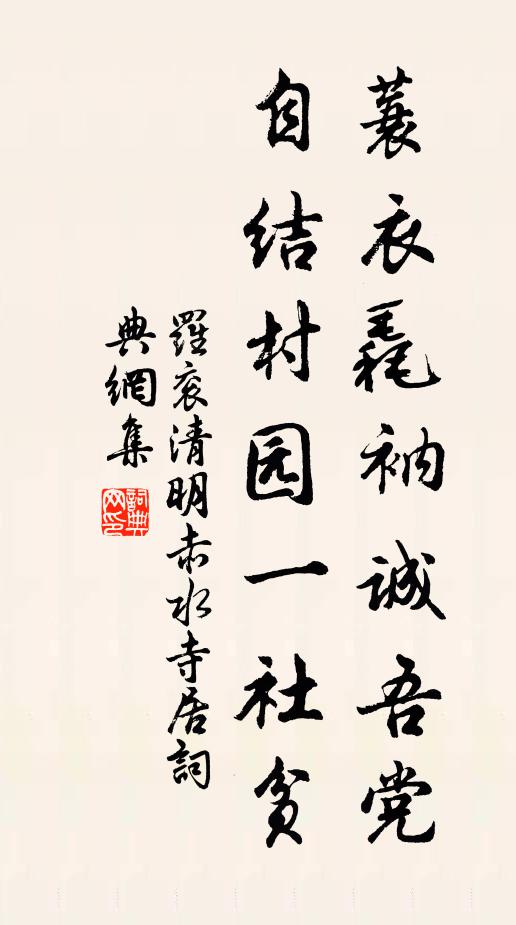 蓑衣毳衲诚吾党
自结村园一社贫
羅衮清明赤水寺居詞
典網集
詞典網印